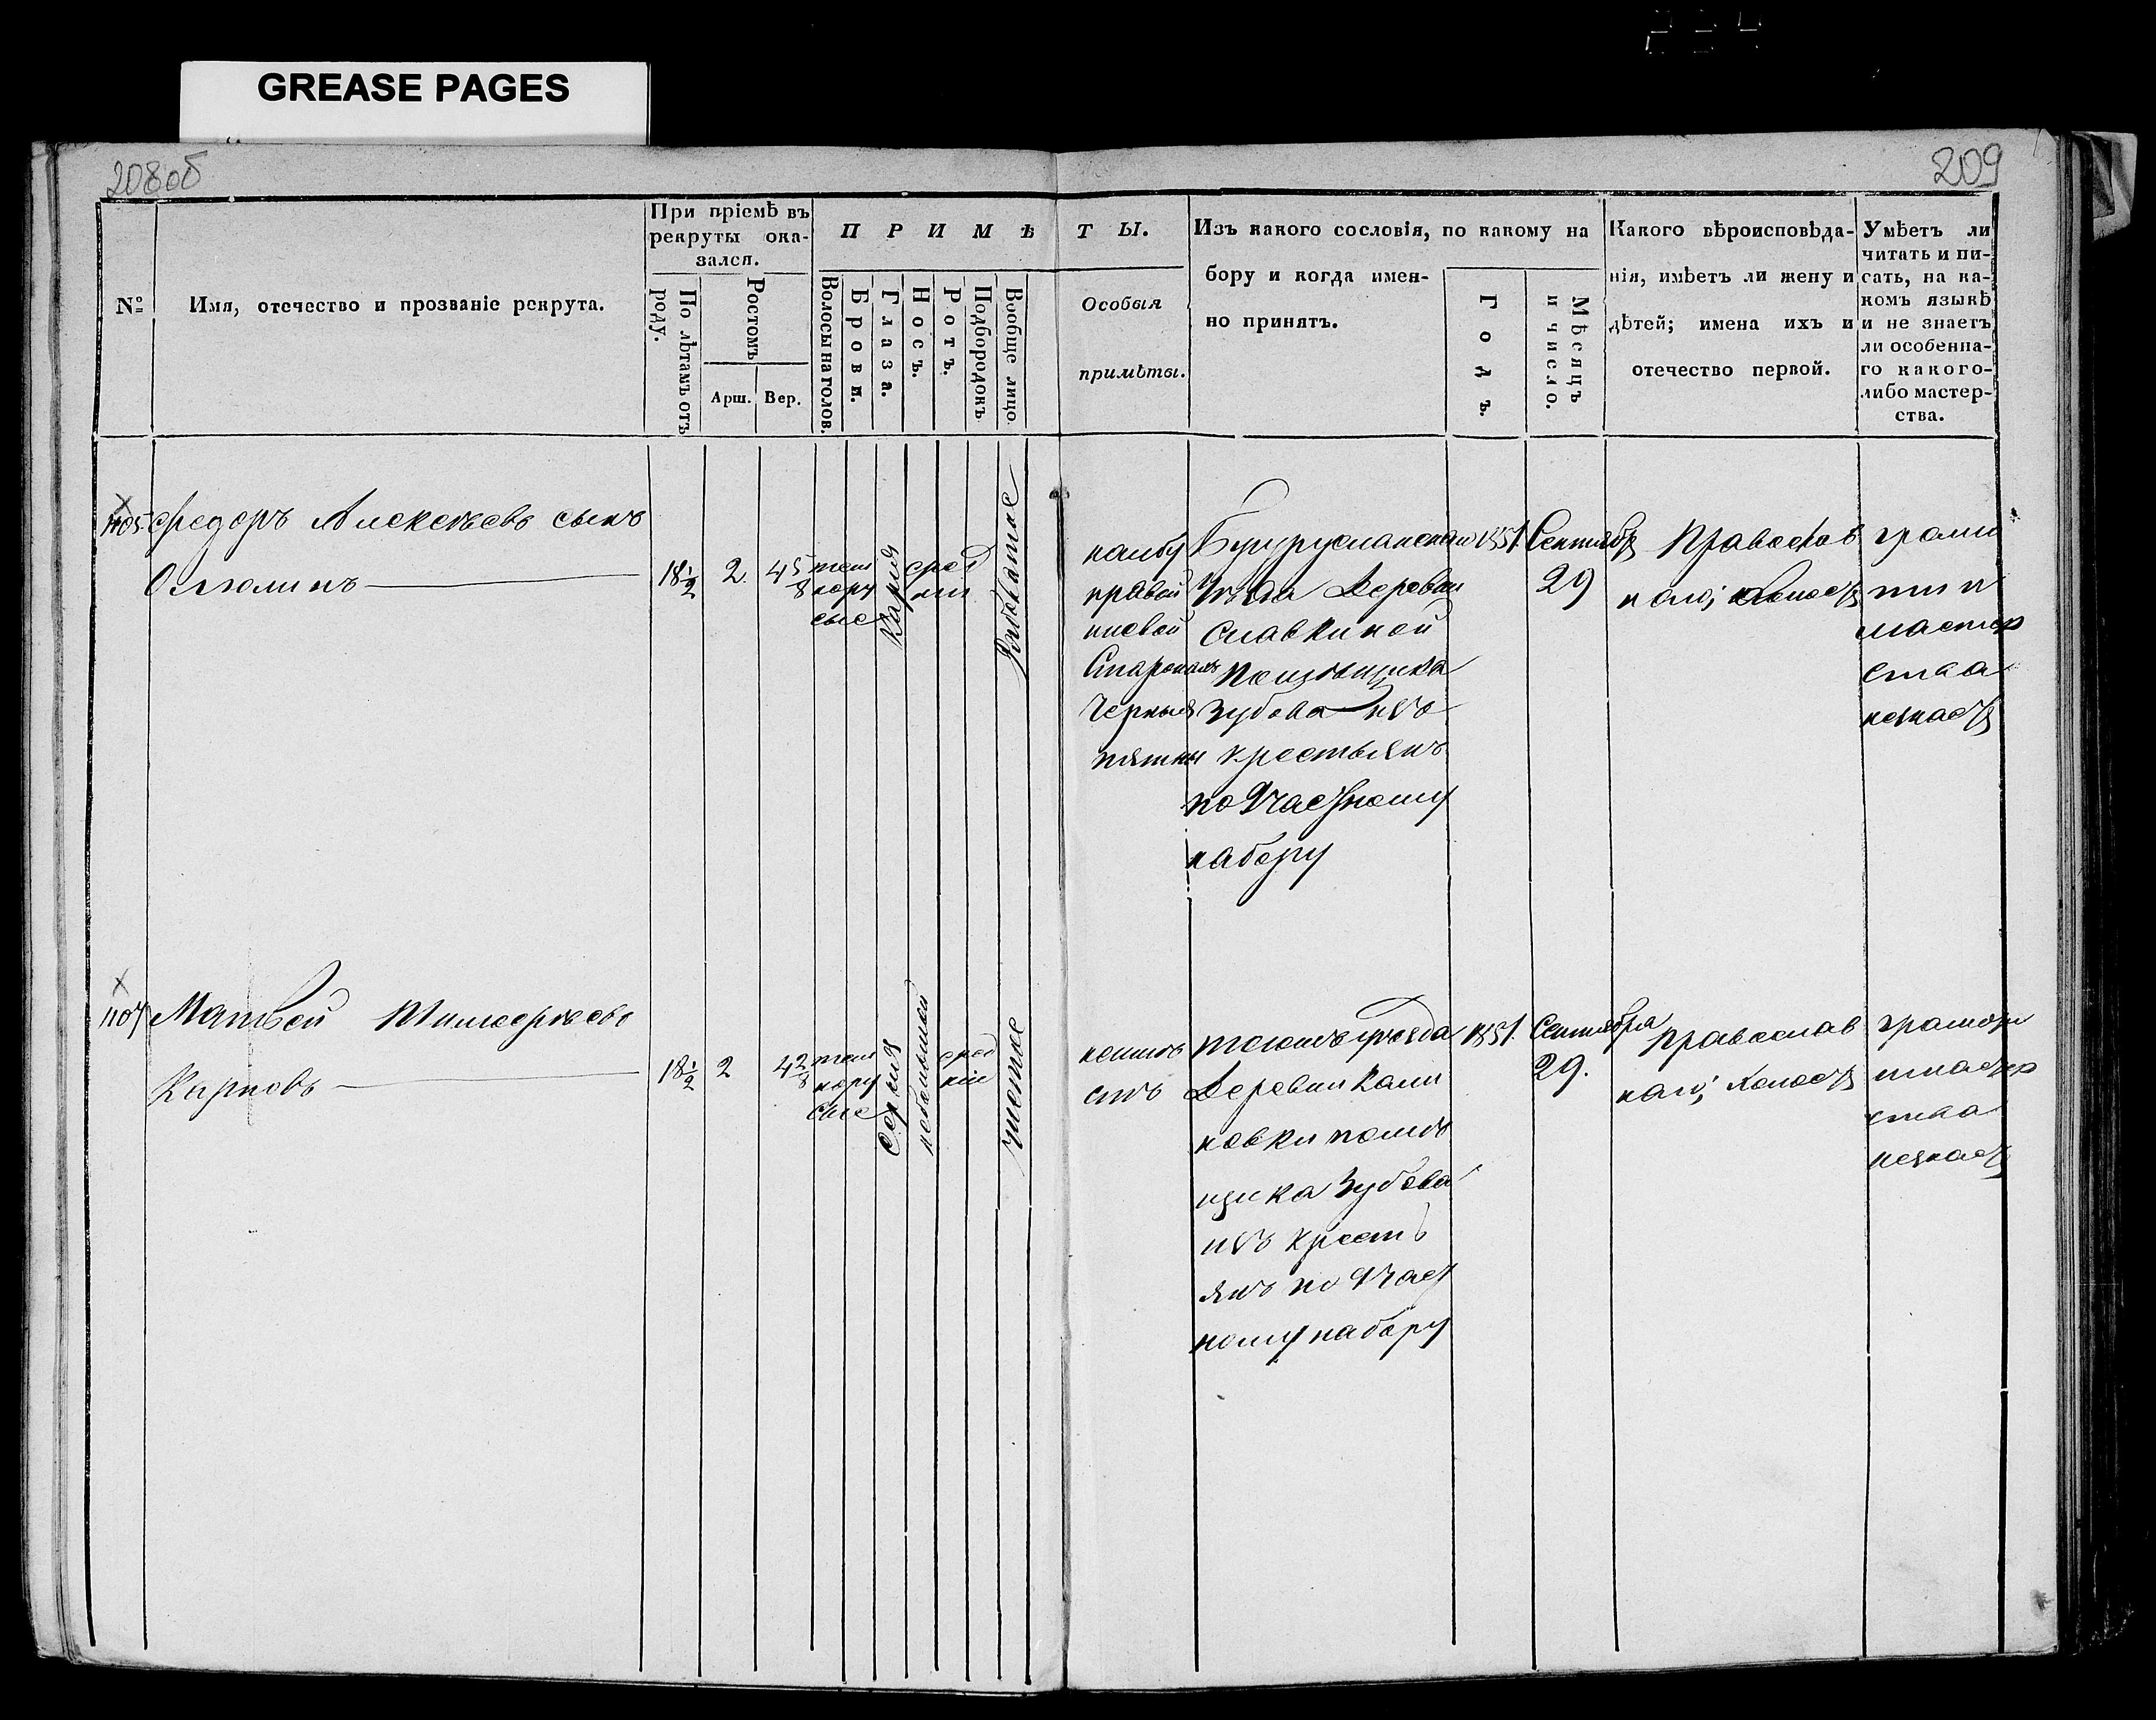 GREASE PAGES
208об
209
№
Имя, отечество и прозваніе рекрута.
При пріемѣ въ
рекруты ока-
зался.
По лѣтамъ отъ
роду.
Ростомъ
Арш.
Вер.
ПРИМѢТЫ.
Волосы на голов.
Брови.
Глаза.
Носъ.
Ротъ.
Подбородокъ.
Вообще лицо.
Особыя
примѣты.
Изъ какого сословія, по какому на
бору и когда имен-
но принятъ.
Годъ.
Мѣсяцъ
и число.
Какого вѣроисповѣда-
нія, имѣетъ ли жену и
дѣтей; имена ихъ и
отечество первой.
Умѣетъ ли
читать и пи-
сать, на ка-
комъ языкѣ
и не знаетъ
ли особенна-
го какого-
либо мастер-
ства.
Федоръ Алексѣевъ сынъ
18 1/2
2
4 5/8
темно
русые
Карія
сред
ній
Рябоватое
на лбу
правой
черныя
пятны
Бугурусланскаго
Уѣзда Деревни
Славкиной
помѣщика
Зубова изъ
крестьянъ
по 9 частному
набору
1851.
Сентября
29
Православ
наго; холостъ
грамо
ты и
мастер
ства
незнаетъ
1107
Матвей Тимофѣевъ
Карповъ
18 1/2
2
4 2/8
темно
русые
Серыя
небольшой
сред
ній
чистое
тогожъ уѣзда
Деревни
помѣ
щика Зубова
изъ кресть
янъ по 9 част
ному набору
1851.
Сентября
29.
православ
наго; холостъ
грамоты
мастер
ства
незнаетъ